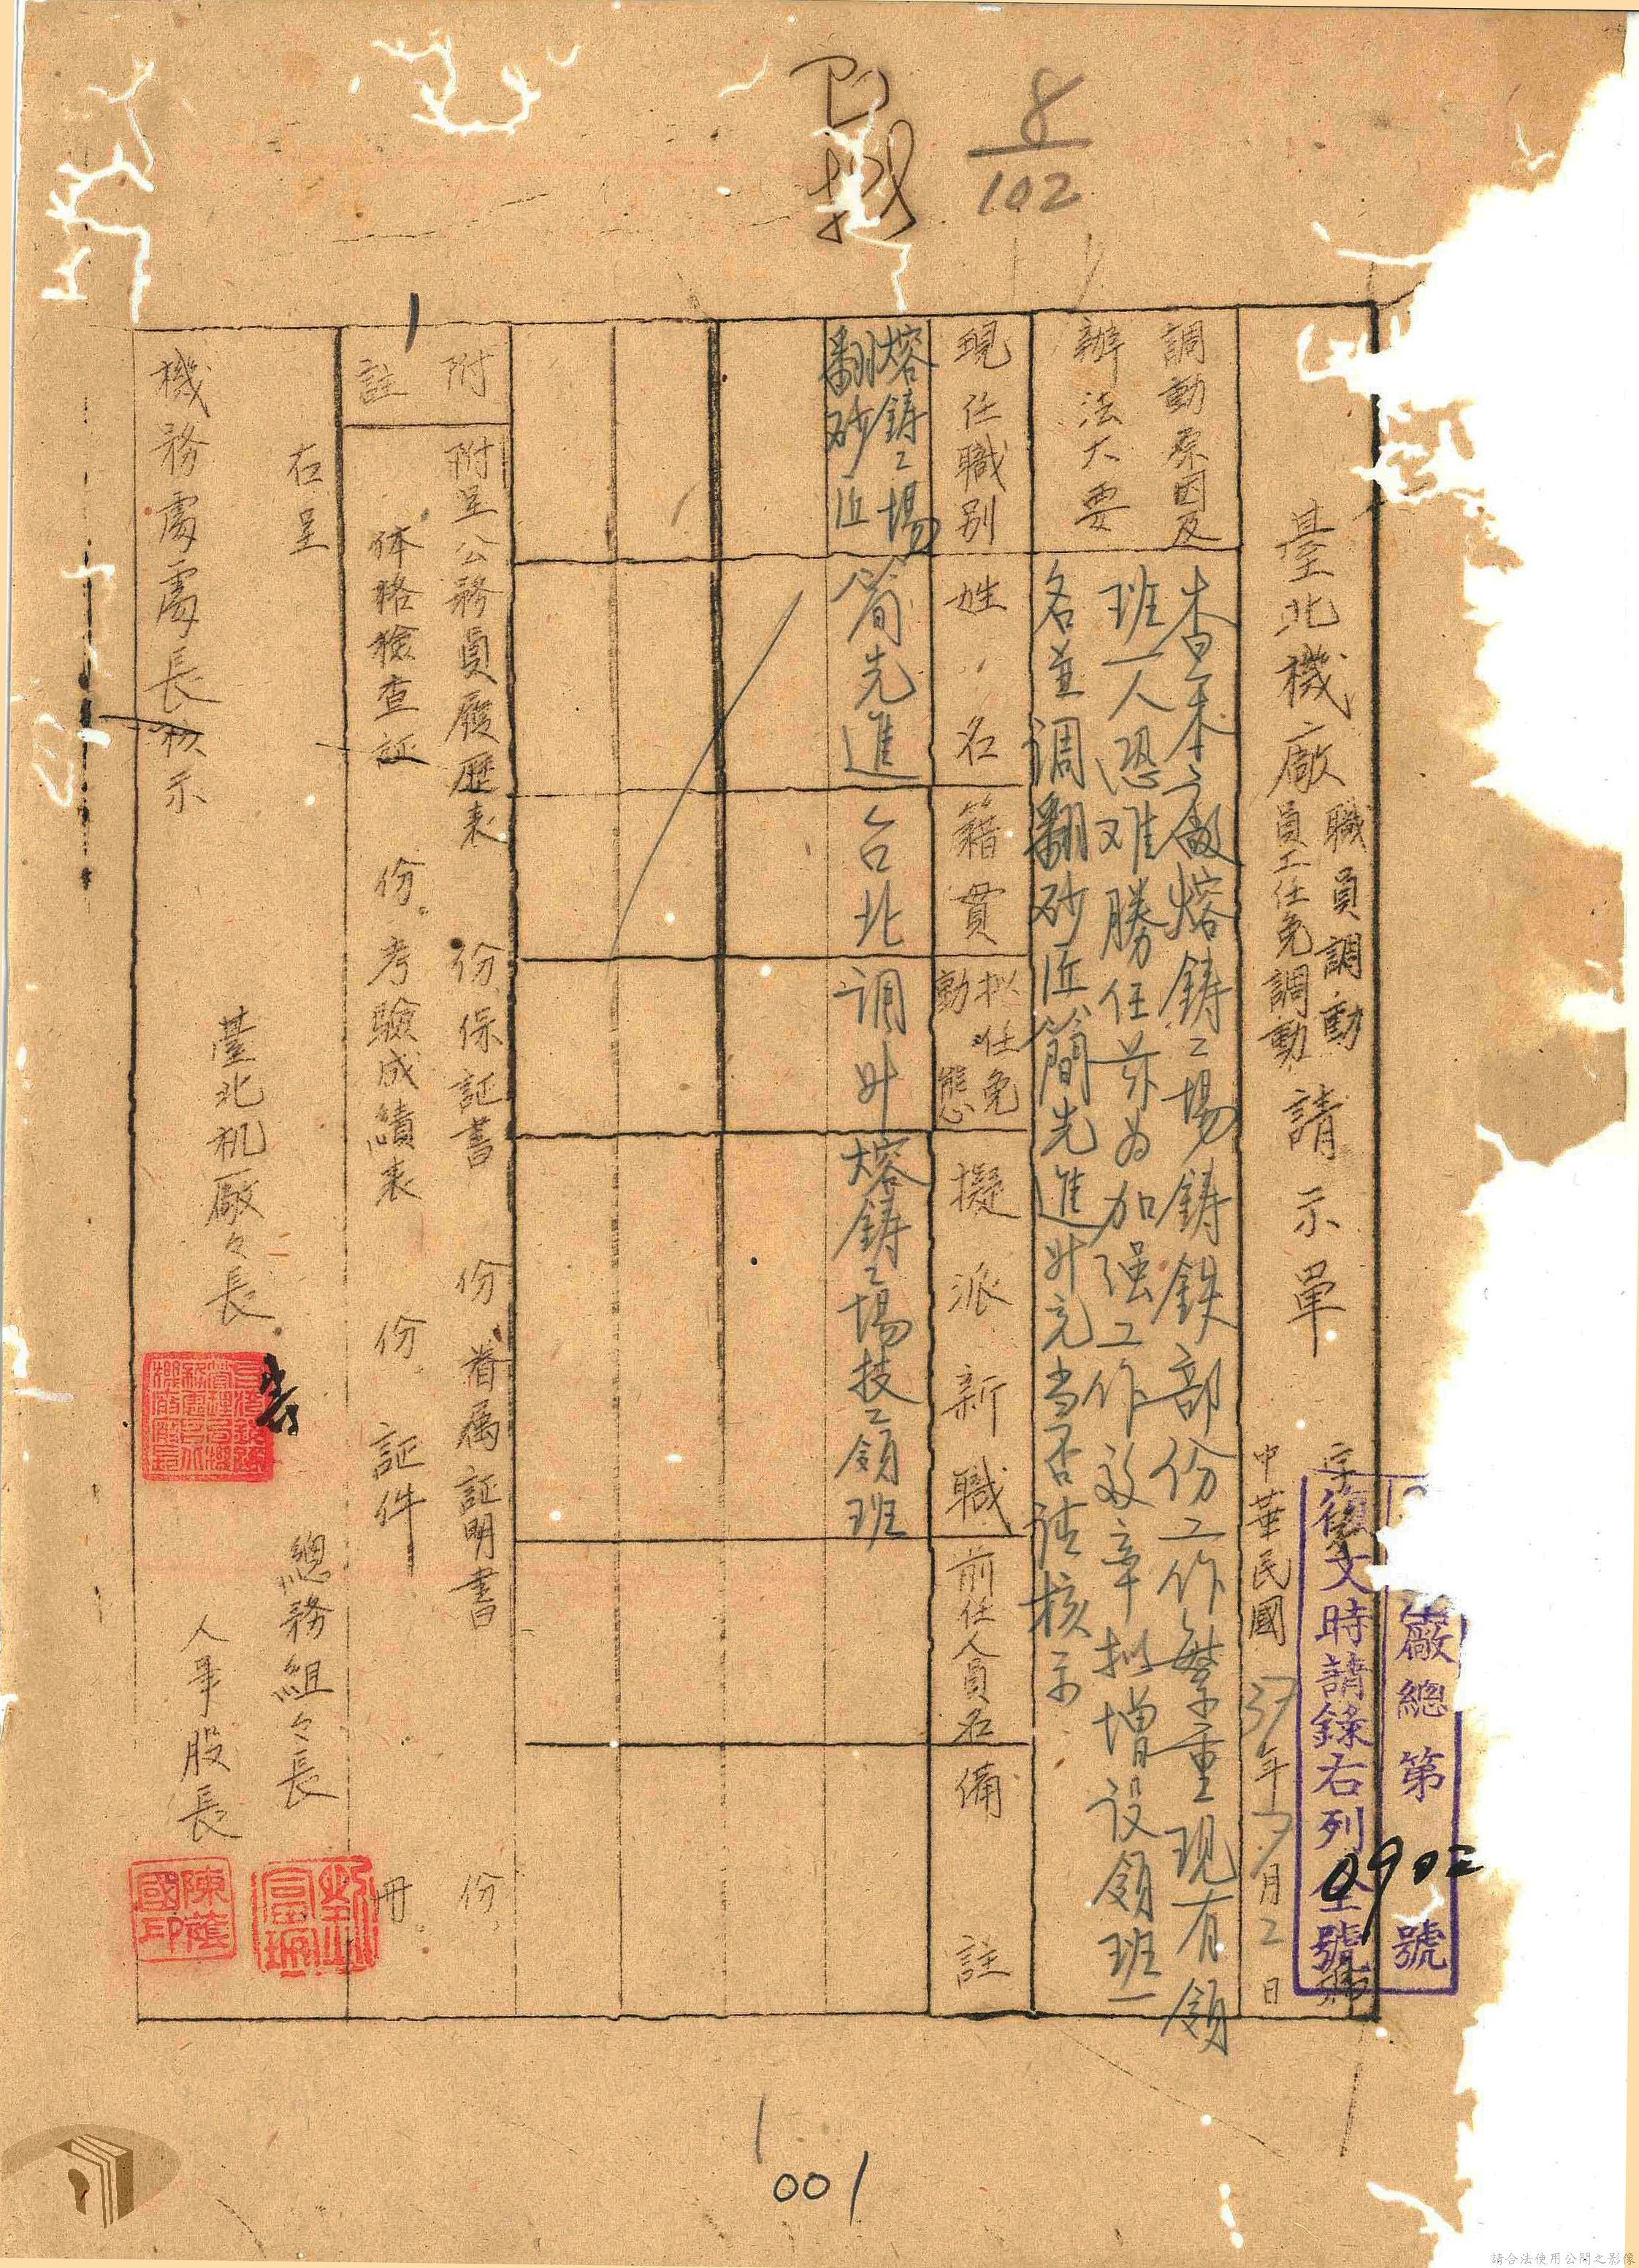 8
102
廠總第0902號
復文時請錄右列全號
臺北機廠
職員調動
員工任免調動
請示單
字
號
中華民國37年7月2日
調動原因及
辦法大要
查本廠熔鑄工場鑄鉄部份工作繁重現有領
班一人恐难勝任茲為加强工作效率拟增设领班一
名並调翻砂匠簡先進升充当否请核示
現任職別
姓名
籍貫
拟任免
動態
擬派新職
前任人員名
備註
熔鑄工場
翻砂匠
簡先進
台北
调升
熔鑄工場技工領班
附註
附呈公務員履歷表 份、保証書 份、眷属証明書 份、
体格檢查証 份。考驗成績表 份。証件 冊。
右呈
機務處處長核示
臺北机廠々長
總務組々長
人事股長
001
請合法使用公開之影像